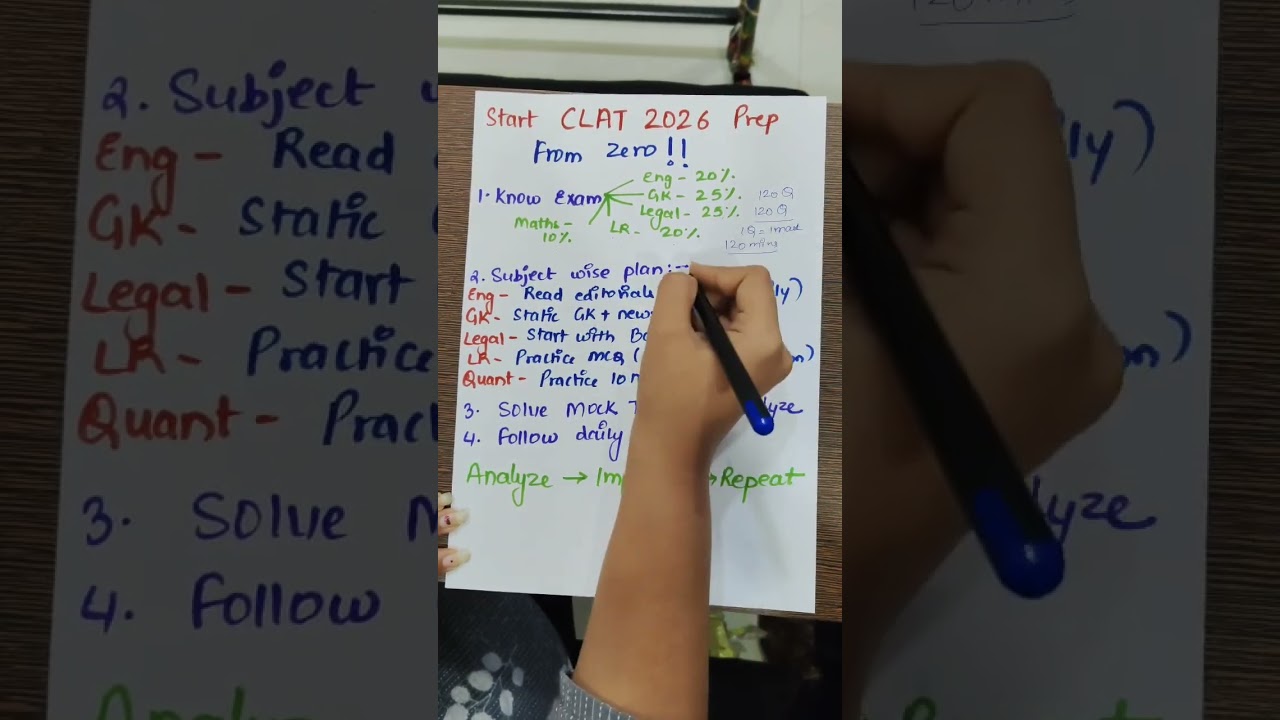 Start CLAT 2026 Prep
From zero!!
1. Know Exam
Eng - 20%.
GK - 25%.
Legal - 25%.
LR - 20%.
Maths - 10%.
120 Q
120 Q
1Q = 1
120 mins
2. Subject wise plan:-
Eng - Read editorials
GK - Static GK + news
Legal - Start with
LR - Practice MCQ (
Quant - Practice 10
3. Solve Mock
4. Follow daily
Analyze → → Repeat